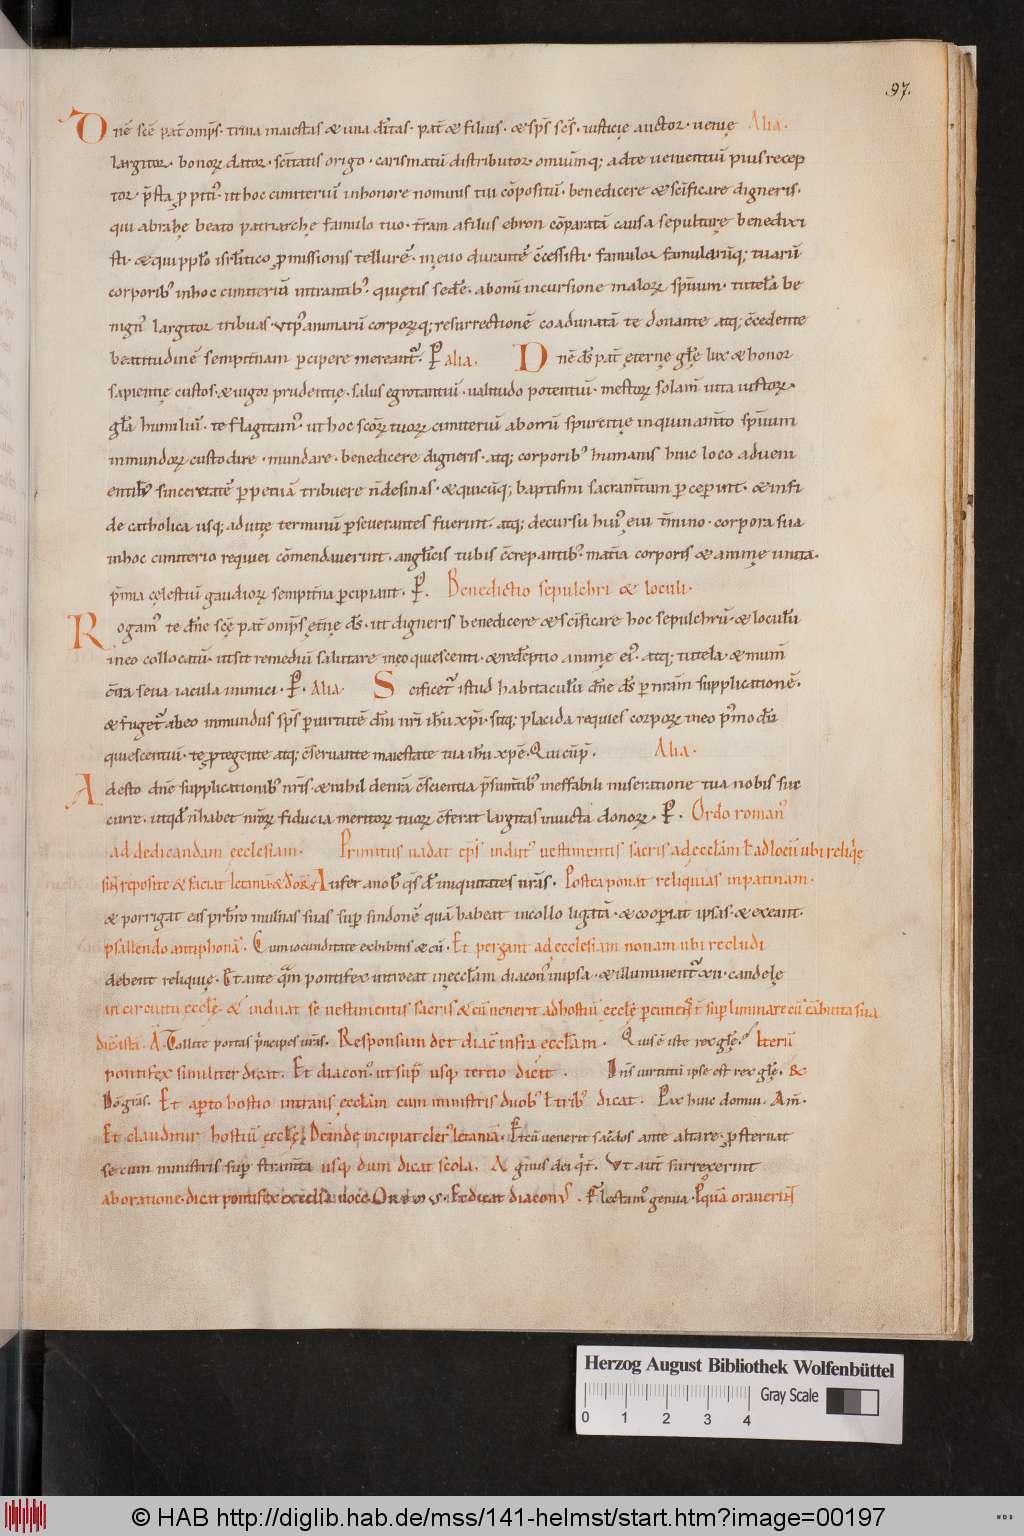 97.
Dnē scē pat̄ omp̄s. trina maiestas & una dītas. pat̄ & filius. & sp̄s sc̄s. iusticię auctor. uenię Alia.
largitor. bonoꝝ dator. sc̄itatis origo. carismatū distributor omiumq; ad te uenientiū pius recep
tor. p̄sta ꝓpti'. ut hoc cimiteriū in honore nominis tui cōpositū. benedicere & sc̄ificare digneris.
qui abrahę beato patriarchę famulo tuo. t̄ram a filiis ebron cōparatā causa sepulturę benedixi
sti. & qui pplo isrl̄itico ꝓmissionis tellurē. in euo durantē c̄cessisti. famuloꝝ famularūq; tuarū
corporib' in hoc cimiteriū intrantib'. quietis sedē. ab omi incursione maloꝝ sp̄uum. tutelā be
nign' largitor tribuas. ut p' animarū corporꝝq; resurrectionē coadunatā te donante atq; c̄cedente
beatitudinē sempit̄nam ꝑcipere mereant̄. P. Alia. Dnē ds̄ pat̄ ęternę glę lux & honor
sapientię custos. & uigor prudentię. salus egrotantiū. ualitudo potentiū. mestoꝝ solam̄ uita iustoꝝ.
gl̄a humiliū. te flagitam'. ut hoc sc̄oꝝ tuoꝝ cimiteriū ab omī spurcitię inquinam̄to sp̄uum
inmundoꝝ custodire. mundare. benedicere digneris. atq; corporib' humanis huic loco adueni
entib' sinceritatē ꝑpetuā tribuere n̄ desinas. & quicūq; baptismi sacram̄tum ꝑceperint. & in fi
de catholica usq; ad uitę terminū ꝑseuerantes fuerint. atq; decursu hui' eui t̄mino. corpora sua
in hoc cimiterio requiei cōmendauerint. angl̄icis tubis c̄crepantib'. mat̄ia corporis & animę unita.
p̄mia cęlestiū gaudioꝝ sempit̄na ꝑcipiant. P. Benedictio sepulchri & loculi.
Rogam' te dn̄e scē pat̄ omp̄s ęt̄ne ds̄. ut digneris benedicere & sc̄ificare hoc sepulchrū. & loculū
in eo collocatū. ut sit remediū salutare in eo quiescenti. & red̄eptio animę ei'. atq; tutela & munim̄
c̄tra seua iacula inimici. P. Alia. Sc̄ificet̄ istud habitaculū dn̄e ds̄ ꝑ nr̄am supplicationē.
& fuget̄ ab eo inmundus sp̄s ꝑ uirtutē dn̄i nr̄i ihū xp̄i. sitq; placida requies corpoꝝ in eo
quiescentiū. te ꝓtegente atq; c̄seruante maiestate tua ihū xp̄e. Qui cū p̄. Alia.
Adesto dn̄e supplicationib' nr̄is. & nihil de nr̄a c̄scientia p̄sum̄tib' ineffabili miseratione tua nobis suc
curre. ut qd̄ n̄ habet nr̄oꝝ fiducia meritoꝝ tuoꝝ c̄ferat largitas inuicta donoꝝ. P. Ordo roman'
ad dedicandam ęcclesiam. Primitus uadat ep̄s indut' uestimentis sacris ad ęccl̄am l̄ ad locū ubi reliq̄ę
sūt reposite & faciat letaniā. & Aufer a nob̄ q̄s dn̄e iniquitates nr̄as. Postea ponat reliquias in patinam.
& porrigat eas pr̄bro in ulnas suas suꝑ sindonē quā habeat in collo ligatā. & cooꝑiat ipsas. & exeant.
psallendo antiphonā. Cum iocunditate exhibitis & cū. Et pergant ad ęcclesiam nouam ubi recludi
debent reliquię. Et ante q̄m pontifex introeat in ęccl̄am diacon' in ipsa. & illuminent̄ xii. candelę
in circuitu ęccl̄ę. & induat se uestimentis sacris & cū uenerit ad hostiū ęccl̄ę ꝑcutiens suꝑ liminare cū cābutta sua
dic̄ ista. A. Tollite portas p̄ncipes urās. Responsum det diac̄ infra ęccl̄am. Quis ē iste rex glę. Iterū
pontifex similiter dicat. Et diacon' ut sup̄ usq tercio dicit. Dn̄s uirtutū ipse est rex glę. &
D̄o gr̄as. Et aꝑto hostio intrans ęccl̄am cum ministris duob' l̄ trib' dicat. Pax huic domui. Am̄.
Et clauditur hostiū ęccl̄ę. Deinde incipiat cler' letaniā. Et cū uenerit sac̄dos ante altare. ꝓsternat
se cum ministris suꝑ stram̄ta usq dum dicat scola. Agnus dei q̄ t̄. Ut aut̄ surrexerint
ab oratione. dicat pontifex excelsa uoce. Oremus. Et dicat diacon'. Flectam' genua. Pquā orauerit̄
Herzog August Bibliothek Wolfenbüttel
0 1 2 3 4 Gray Scale
© HAB http://diglib.hab.de/mss/141-helmst/start.htm?image=00197